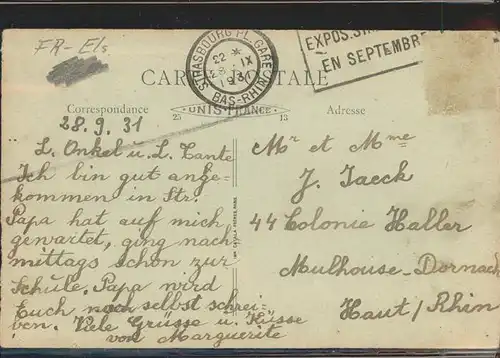 FR-Els
STRASBOURG PL. GARE
22 *
28 IX
1931
BAS-RHIN
EXPOS.
EN SEPTEMBRE
CARTE POSTALE
Correspondance
Adresse
25 UNIS-FRANCE 13
28.9.31
L. Onkel u. L. Tante
Ich bin gut ange-
kommen in Str.
Papa hat auf mich
gewartet, ging nach
mittags schon zur
Schule. Papa wird
Euch noch selbst schrei-
ben. Viele Grüsse u. Küsse
von Marguerite
Mr et Mme
J. Jaeck
44 Colonie Haller
Mulhouse-Dornach
Haut/Rhin